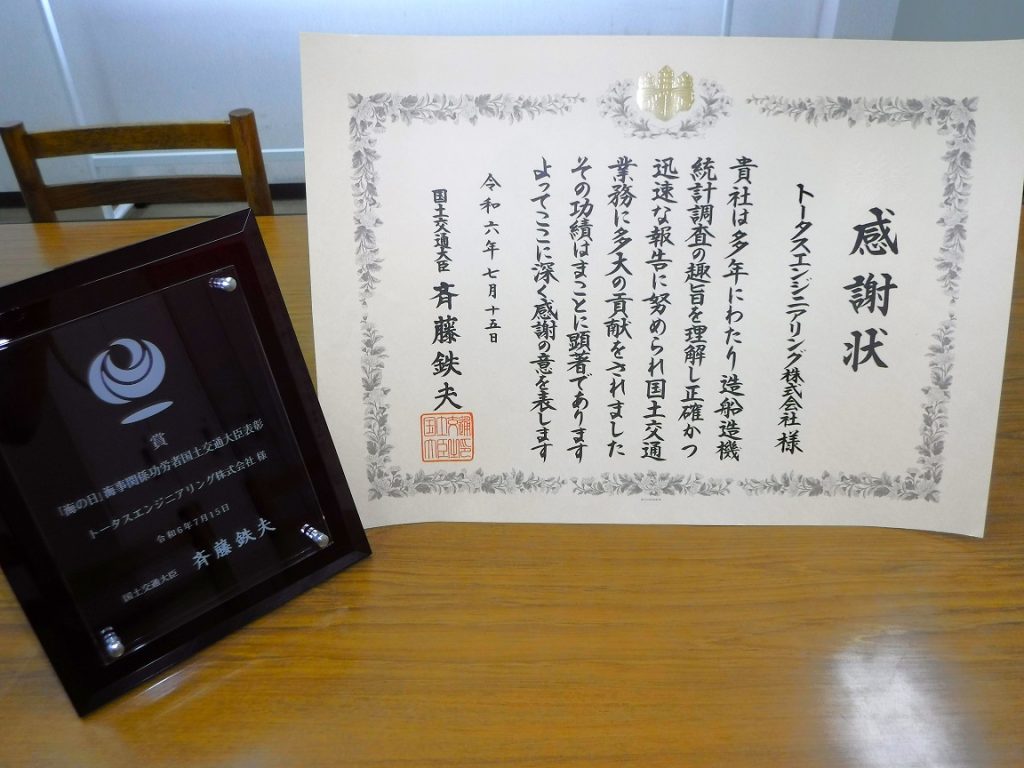 感謝状
トータスエンジニアリング株式会社 様
貴社は多年にわたり造船造機
統計調査の趣旨を理解し正確かつ
迅速な報告に努められ国土交通
業務に多大の貢献をされました
その功績はまことに顕著であります
よってここに深く感謝の意を表します
令和六年七月十五日
国土交通大臣 斉藤鉄夫
賞
『海の日』海事関係功労者国土交通大臣表彰
トータスエンジニアリング株式会社 様
令和6年7月15日
国土交通大臣 斉藤鉄夫